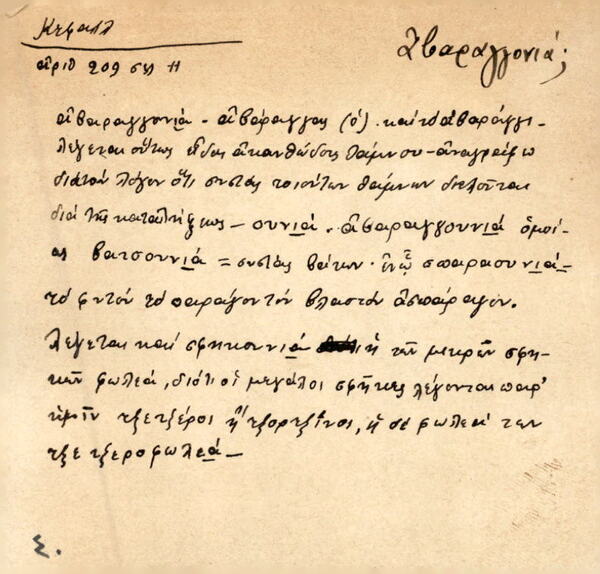 Κεφαλλ
ἀριθ 209 σελ 11
ἀβαραγγονιά;
ἀβαραγγονιά - ἀβάραγγας (ὁ) · καὶ τὸ ἀβαράγγι -
λέγεται οὕτως εἶδος ἀκανθώδους θάμνου - ἀναγράφω
διὰ τὸν λόγον ὅτι συστὰς τοιούτων θάμνων δηλοῦται
διὰ τῆς καταλήξεως - ουνιά. ἀβαραγγουνιά ὁμοί-
ως βατσουνιά = συστὰς βάτων · ἐνῷ σπαρασυνιά -
τὸ φυτόν τὸ παράγον τὸν βλαστὸν ἀσπάραγον.
λέγεται καὶ σφηκουνιά ἡ τῶν μικρῶν σφη-
κῶν φωλεά, διότι οἱ μεγάλοι σφῆκες λέγονται παρ'
ἡμῖν τζετζέροι ἢ τζορτζῖνοι, ἡ δὲ φωλεά των
τζετζεροφωλεά -
Σ.